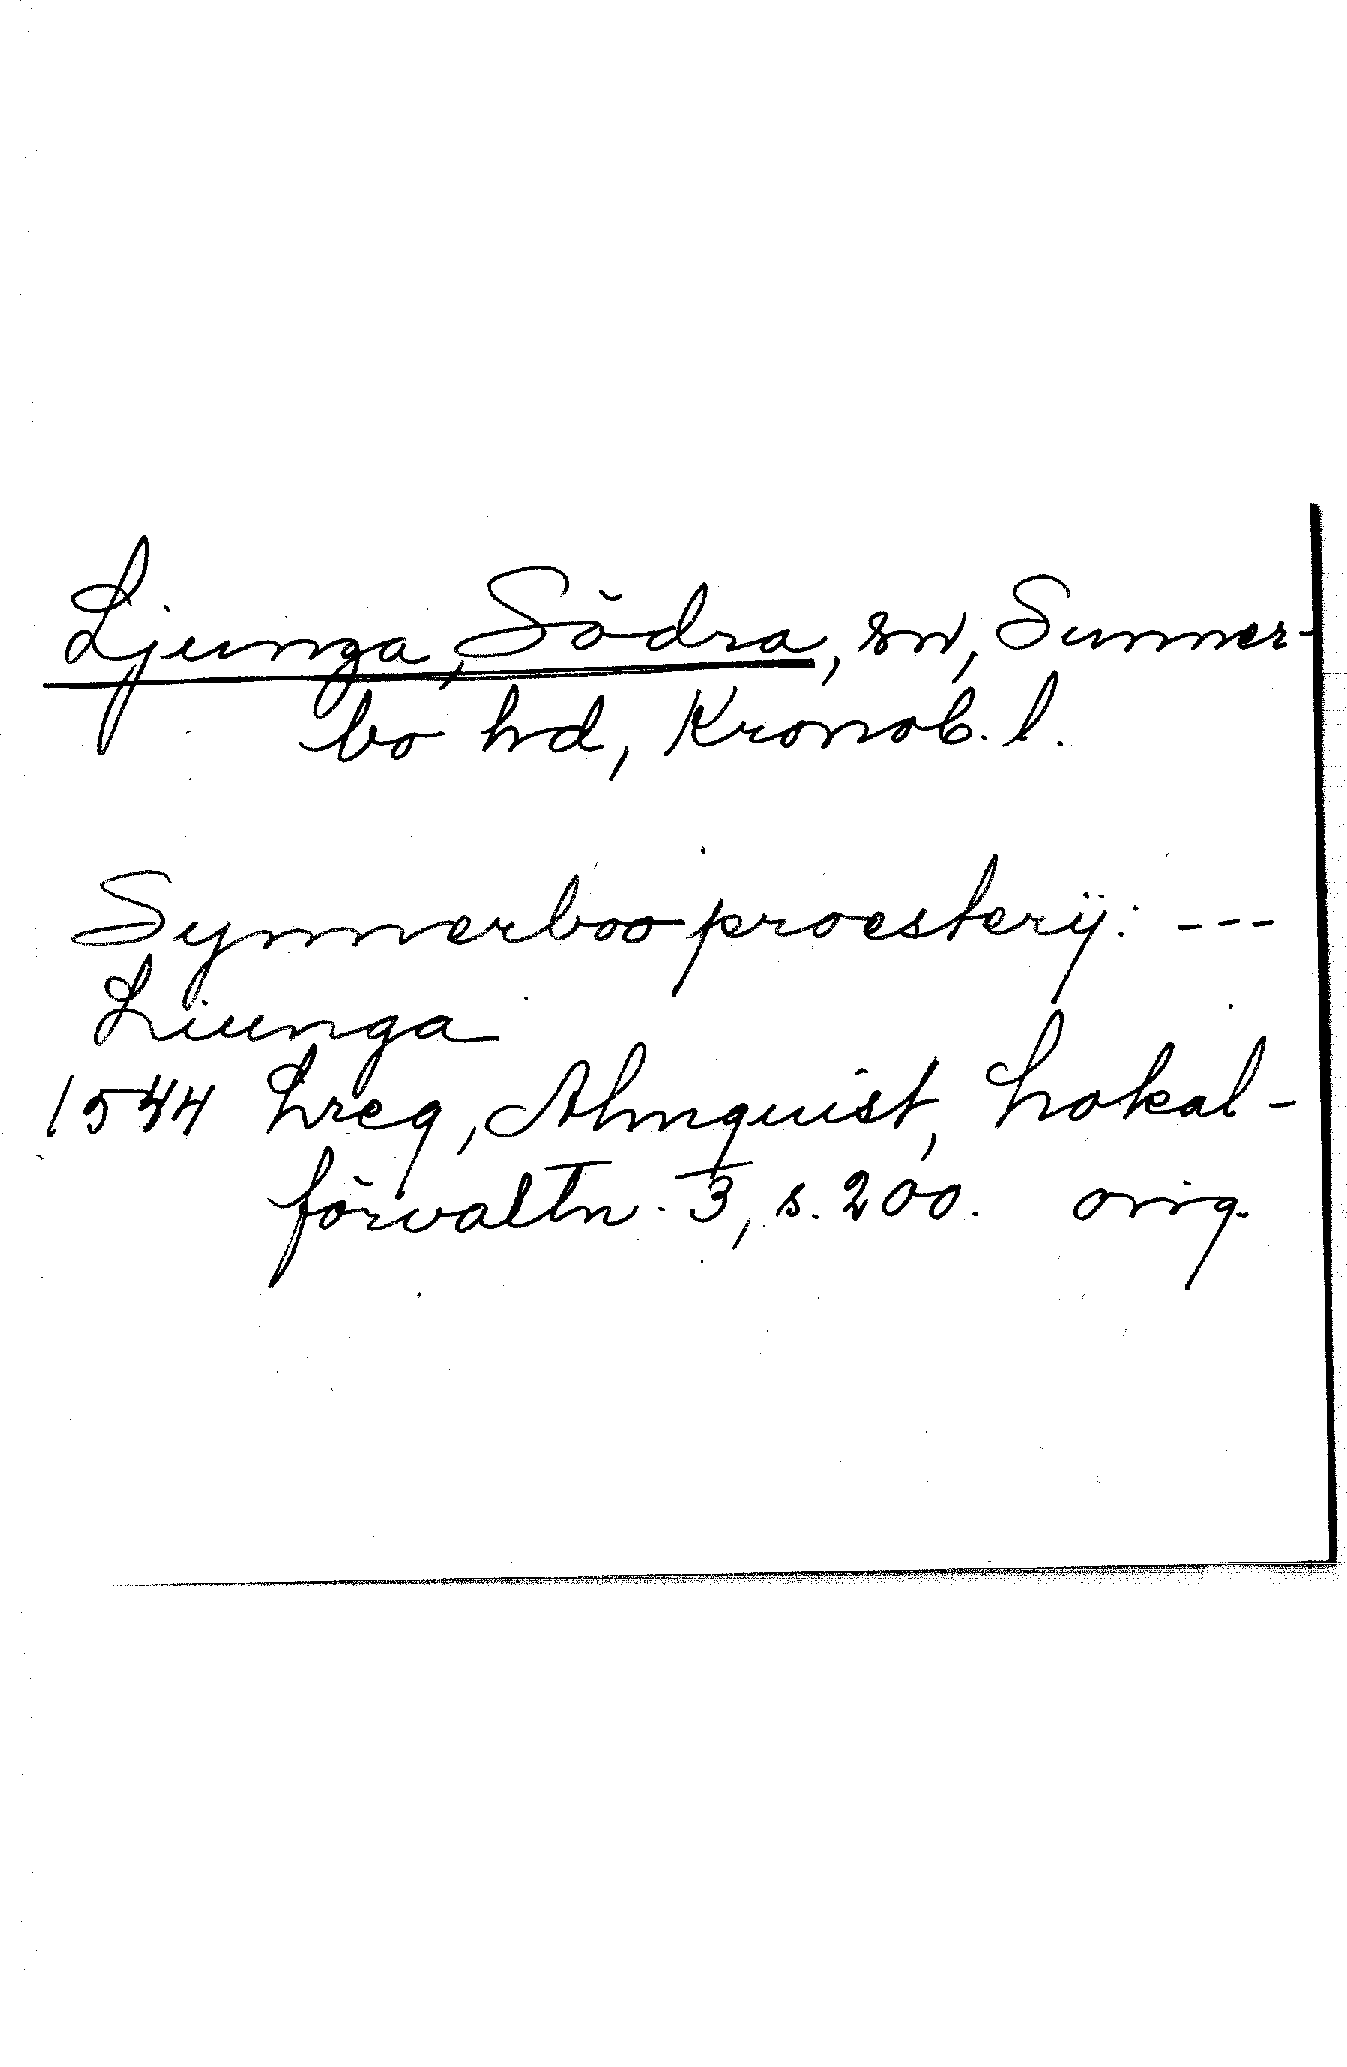 Ljunga, Södra, sn, Sunner-
bo hd, Kronob. l.
Synnerboo proesterij: ---
Liunga
1544 Lreg, Almquist, Lokal-
förvaltn. 3, s. 200. orig.